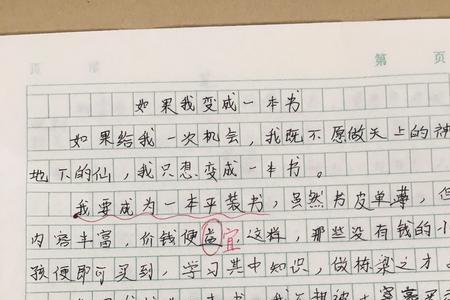 第 页
如果我变成一本书
如果给我一次机会，我既不愿做天上的神
地下的仙，我只想变成一本书。
我要成为一本平装书，虽然书皮单薄，但
内容丰富，价钱便宜，这样，那些没有钱的小
孩便即可买到，学习其中知识，做栋梁之才。